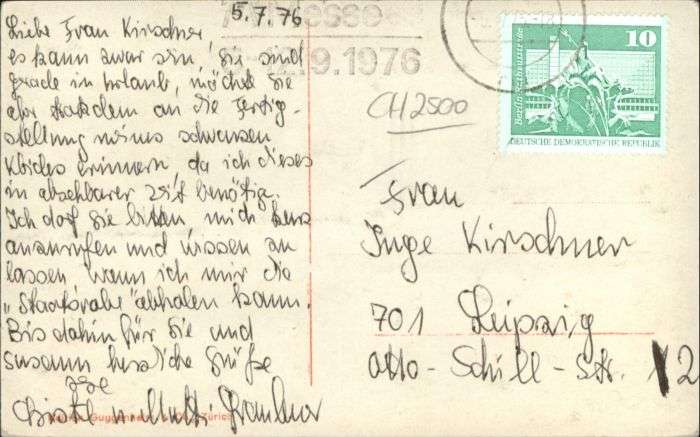 5.7.76
Liebe Frau Kirschner
es kann zwar sein, Sie sind
gerade in Urlaub, möchte Sie
aber trotzdem an die Fertig-
stellung meines schwarzen
Kleides erinnern, da ich dieses
in absehbarer Zeit benötige.
Ich darf Sie bitten, mich kurz
anzurufen und wissen zu
lassen wann ich mir die
"Staatsrobe" abholen kann.
Bis dahin für Sie und
Susann herzliche Grüße
.9.1976
CH2500
10
DEUTSCHE DEMOKRATISCHE REPUBLIK
Frau
Inge Kirschner
701 Leipzig
Otto-Schill-Str. 12
Guggenheim Zürich